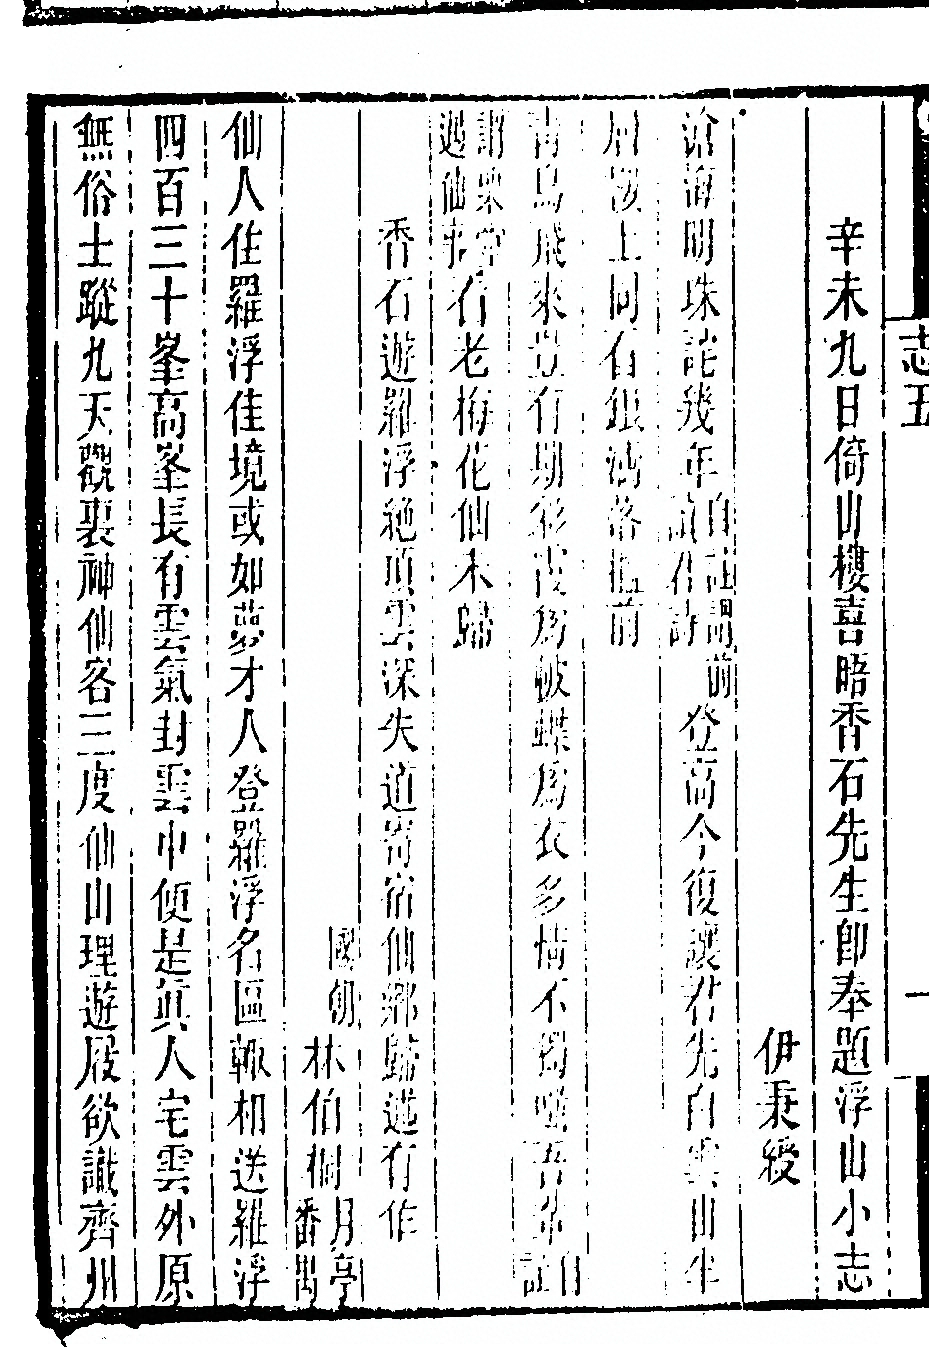 志五
一
辛未九日倚山樓喜晤香石先生即奉題浮山小志
伊秉綬
滄海明珠詫幾年自註謂前讀君詩登高今復讓君先白雲山半
層樓上同看銀濤落檻前
青鳥飛來豈有期彩霞為帔蝶為衣多情不獨吾自註
謂眾香石老梅花仙未歸
香石遊羅浮絶頂雲深失道寄宿仙鄉歸述有作
國朝林伯桐月亭番禺
仙人住羅浮佳境或如夢才人登羅浮名區輒相送羅浮
四百三十峯高峯長有雲氣封雲中便是眞人宅雲外原
無俗士蹤九天觀裏神仙客三度仙山理遊屐欲識齊州